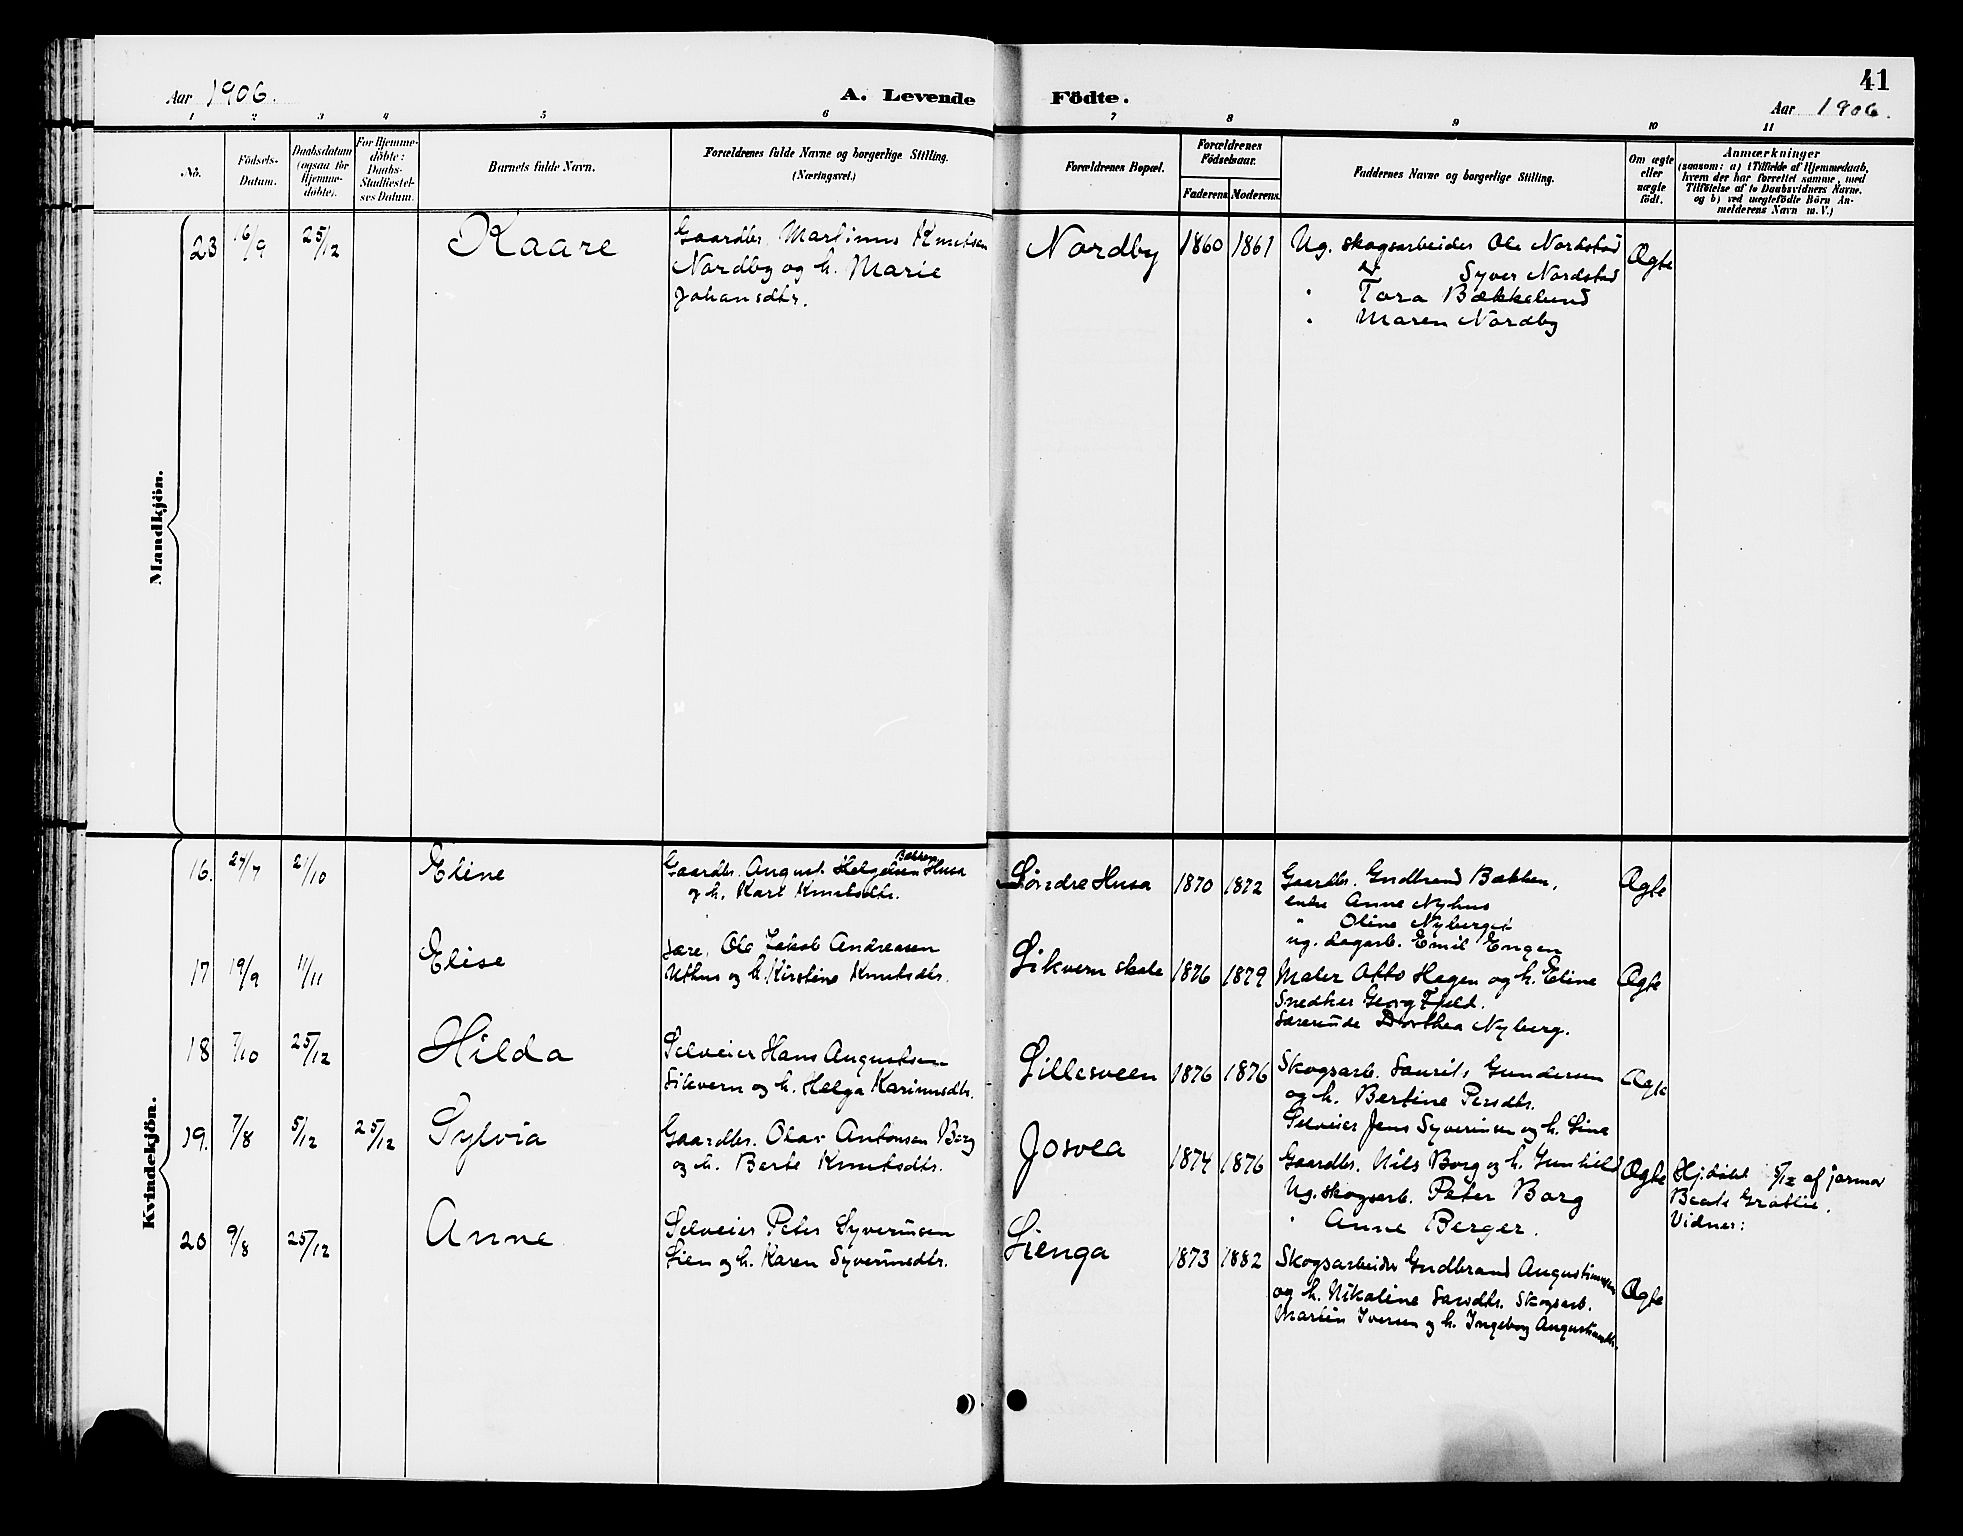 41
Aar 1906.
A. Levende Födte.
Aar 1906.
1 2 3 4 5 6 7 8 9 10 11
No.
Födsels-
Datum.
Daabsdatum
(ogsaa for
Hjemme-
døbte).
For Hjemme-
döbte:
Daabs-
Stadfæstel-
ses Datum.
Barnets fulde Navn.
Forældrenes fulde Navne og borgerlige Stilling.
(Næringsvei.)
Forældrenes Bopæl.
Forældrenes
Födselsaar.
Faderens.
Moderens.
Faddernes Navne og borgerlige Stilling.
Om ægte
eller
uægte
født.
Anmærkninger
(saasom: a) i Tilfælde af Hjemmedaab,
hvem der har forrettet samme, med
Tilföielse af to Daabsvidners Navne.
og b) ved uægtefödte Börn An-
melderens Navn m. V.)
Mandkjön.
23 16/9 25/12 Kaare
Gaardbr. Martinus Knutsen
Nordby og h. Marie
Johansdtr.
Nordby 1860 1861
Ug. skogsarbeider Ole Nordstad
Syver Nordstad
Tora Bækkelund
Maren Nordby
Ægte
Kvindekjön.
16. 27/7 21/10 Eline
Bakken
Gaardbr. August Helgesen Husa
og h. Kari Knutsdtr.
Søndre Husa 1870 1872
Gaardbr. Gudbrand Bakken,
enke Anne Nyhus
" Oline Nyberget
ug. dagarb. Emil Engen
Ægte
17 19/9 11/11 Elise
Lære. Ole Jakob Andreasen
Uthus og h. Kirstine Knutsdtr.
1876 1879
Maler Otto Hagen og h. Eline
Snedker Georg Fjeld.
Lærerinde Dorthea Nyberg.
Ægte
18 7/10 25/12 Hilda
Selveier Hans Augustsen
og h. Helga Karinusdtr.
Lillesveen 1876 1876
Skogsarb. Laurits Gundersen
og h. Bertine Persdtr.
Selveier Jens Syverinsen og h. Lina
Ægte
19. 7/8 5/12 25/12 Sylvia
Gaardbr. Olav Antonsen Borg
og h. Berte Knutsdtr.
Josvea 1874 1876
Gaardbr. Nils Borg og h. Gunhild
Ug. skogsarb. Peter Borg
" Anne Berger.
Ægte
Hj.døbt 5/12 af jormor
Beate
Vidner:
20 9/8 25/12 Anne
Selveier Peter Syverinsen
Lien og h. Karen Syverinsdtr.
Lienga 1873 1882
Skogsarbeider Gudbrand Augustinussen
og h. Nikoline Larsdtr. Skogsarb.
Martin Iversen og h. Ingeborg Augustinusdtr.
Ægte